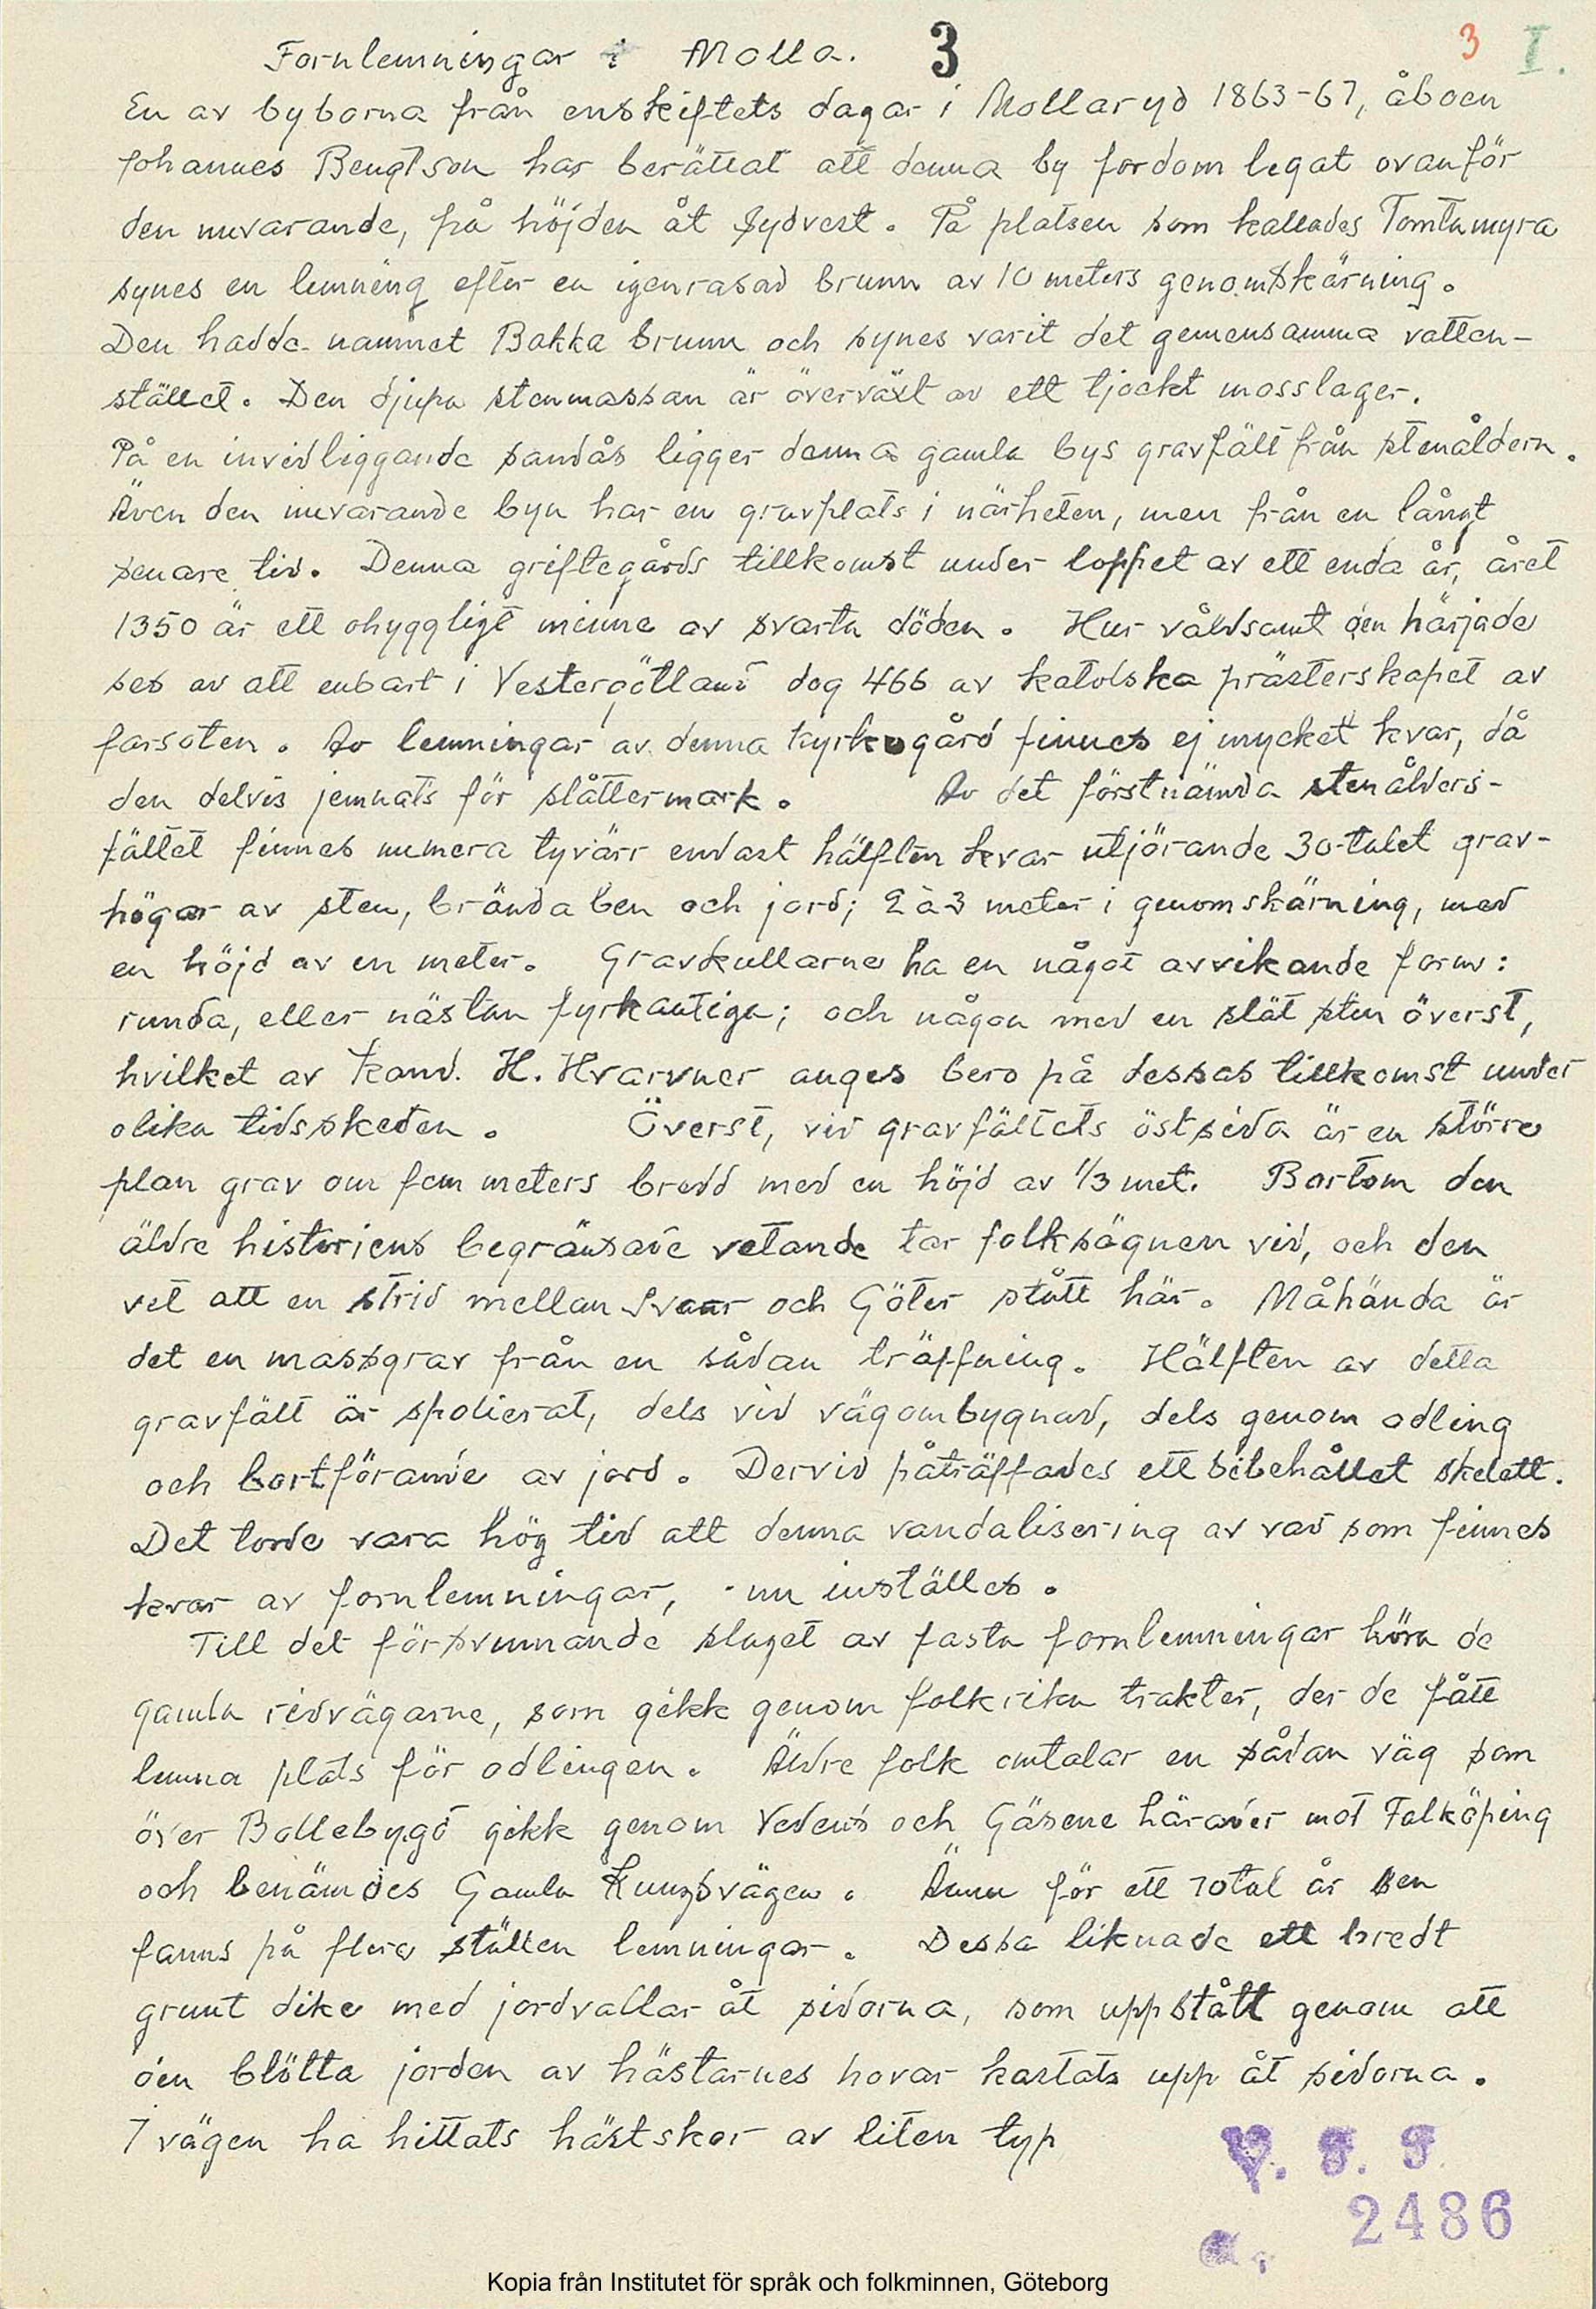 Fornlemningar i Molla. 3 3 I.
En av byborna från enskiftets dagar i Mollaryd 1863-67, åboen
Johannes Bengtson har berättat att denna by fordom legat ovanför
den nuvarande, på höjden åt sydvest. På platsen som kallades Tomtamyra
synes en lemning efter en igenrasad brunn av 10 meters genomskärning.
Den hadde namnet Bakka brunn och synes varit det gemensamma vatten-
stället. Den djupa stenmassan är överväxt av ett tjockt mosslager.
På en invidliggande sandås ligger denna gamla bys gravfält från stenåldern.
Även den nuvarande byn har en gravplats i närheten, men från en långt
senare tid. Denna griftegårds tillkomst under loppet av ett enda år, året
1350 är ett ohyggligt minne av svarta döden. Hur våldsamt den härjade
ses av att enbart i Vestergötland dog 466 av katolska prästerskapet av
farsoten. Av lemningar av denna kyrkogård finnes ej mycket kvar, då
den delvis jemnats för slåttermark. Av det förstnämda stenålders-
fältet finnes numera tyvärr endast hälften kvar utjörande 30-talet grav-
högar av sten, brända ben och jord; 2 à 3 meter i genomskärning, med
en höjd av en meter. Gravkullarne ha en något avvikande form:
runda, eller nästan fyrkantiga; och någon med en slät sten överst,
hvilket av kand. H. Hvarvner anges bero på dessas tillkomst under
olika tidsskeden. Överst, vid gravfältets östsida är en större
plan grav om fem meters bredd med en höjd av 1/3 met. Bortom den
äldre historiens begränsade vetande tar folksägnen vid, och den
vet att en strid mellan Svear och Göter stått här. Måhända är
det en massgrav från en sådan träffning. Hälften av detta
gravfält är spolierat, dels vid vägombygnad, dels genom odling
och bortförande av jord. Dervid påträffades ett bibehållet skelett.
Det torde vara hög tid att denna vandalisering av vad som finnes
kvar av fornlemningar, nu inställes.
Till det försvunnande slaget av fasta fornlemningar höra de
gamla ridvägarne, som gikk genom folkrika trakter, der de fått
lemna plats för odlingen. Äldre folk omtalar en sådan väg som
över Bollebygd gikk genom Vedens och Gäsene härader mot Falköping
och benämdes Gamla Kungsvägen. Ännu för ett 70tal år sen
fanns på flera ställen lemningar. Dessa liknade ett bredt
grunt dike med jordvallar åt sidorna, som uppstått genom att
den blötta jorden av hästarnes hovar kastats upp åt sidorna.
I vägen ha hittats hästskor av liten typ
V. F. F.
2486
Kopia från Institutet för språk och folkminnen, Göteborg